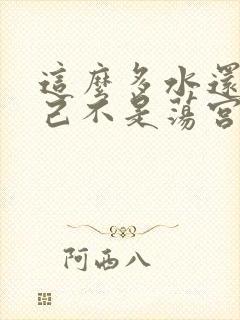 這麼多水還
己不是蕩宮
阿西八